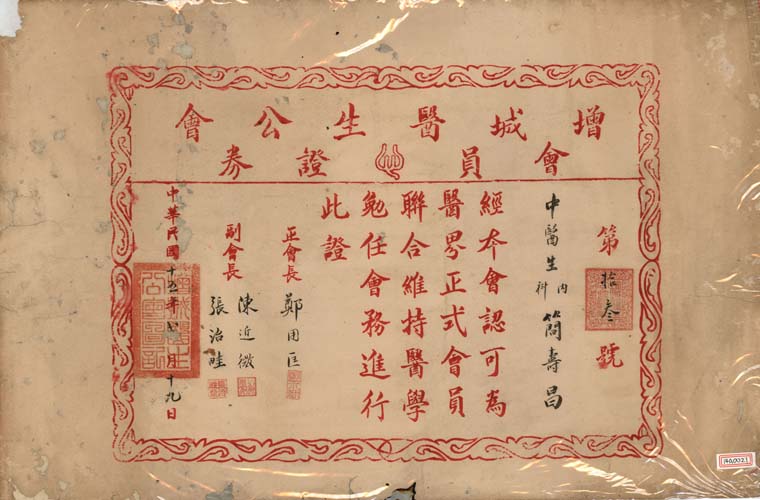 增城醫生公會
會員證券
第拾叁號
中醫生內科簡壽昌
經本會認可為
醫界正式會員
聯合維持醫學
勉任會務進行
此證
正會長 鄭用匡
副會長 陳近微
張治畦
中華民國十五年 月十九日